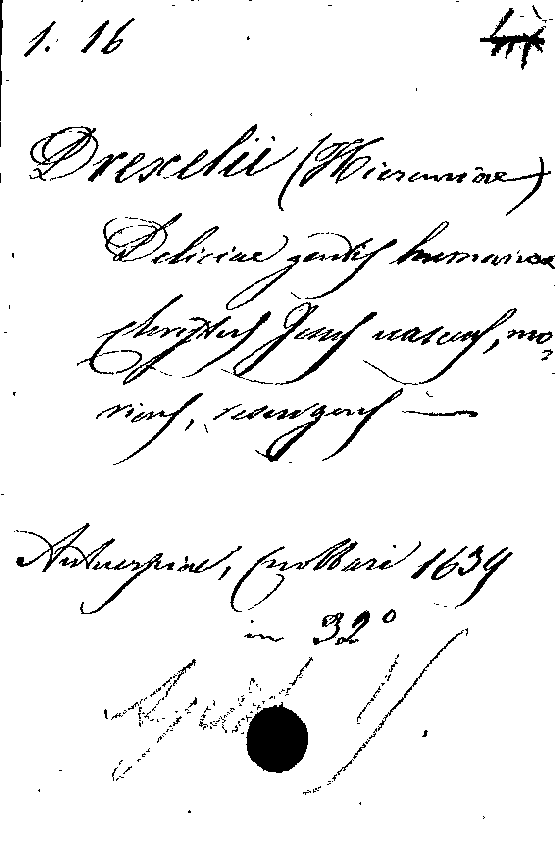 1. 16
Drexelii (Hieremiae)
Deliciae gentis humanae
Christus Jesus nascens, mo-
riens, resurgens —
Antverpiae, Cnobbari 1639
in 32°